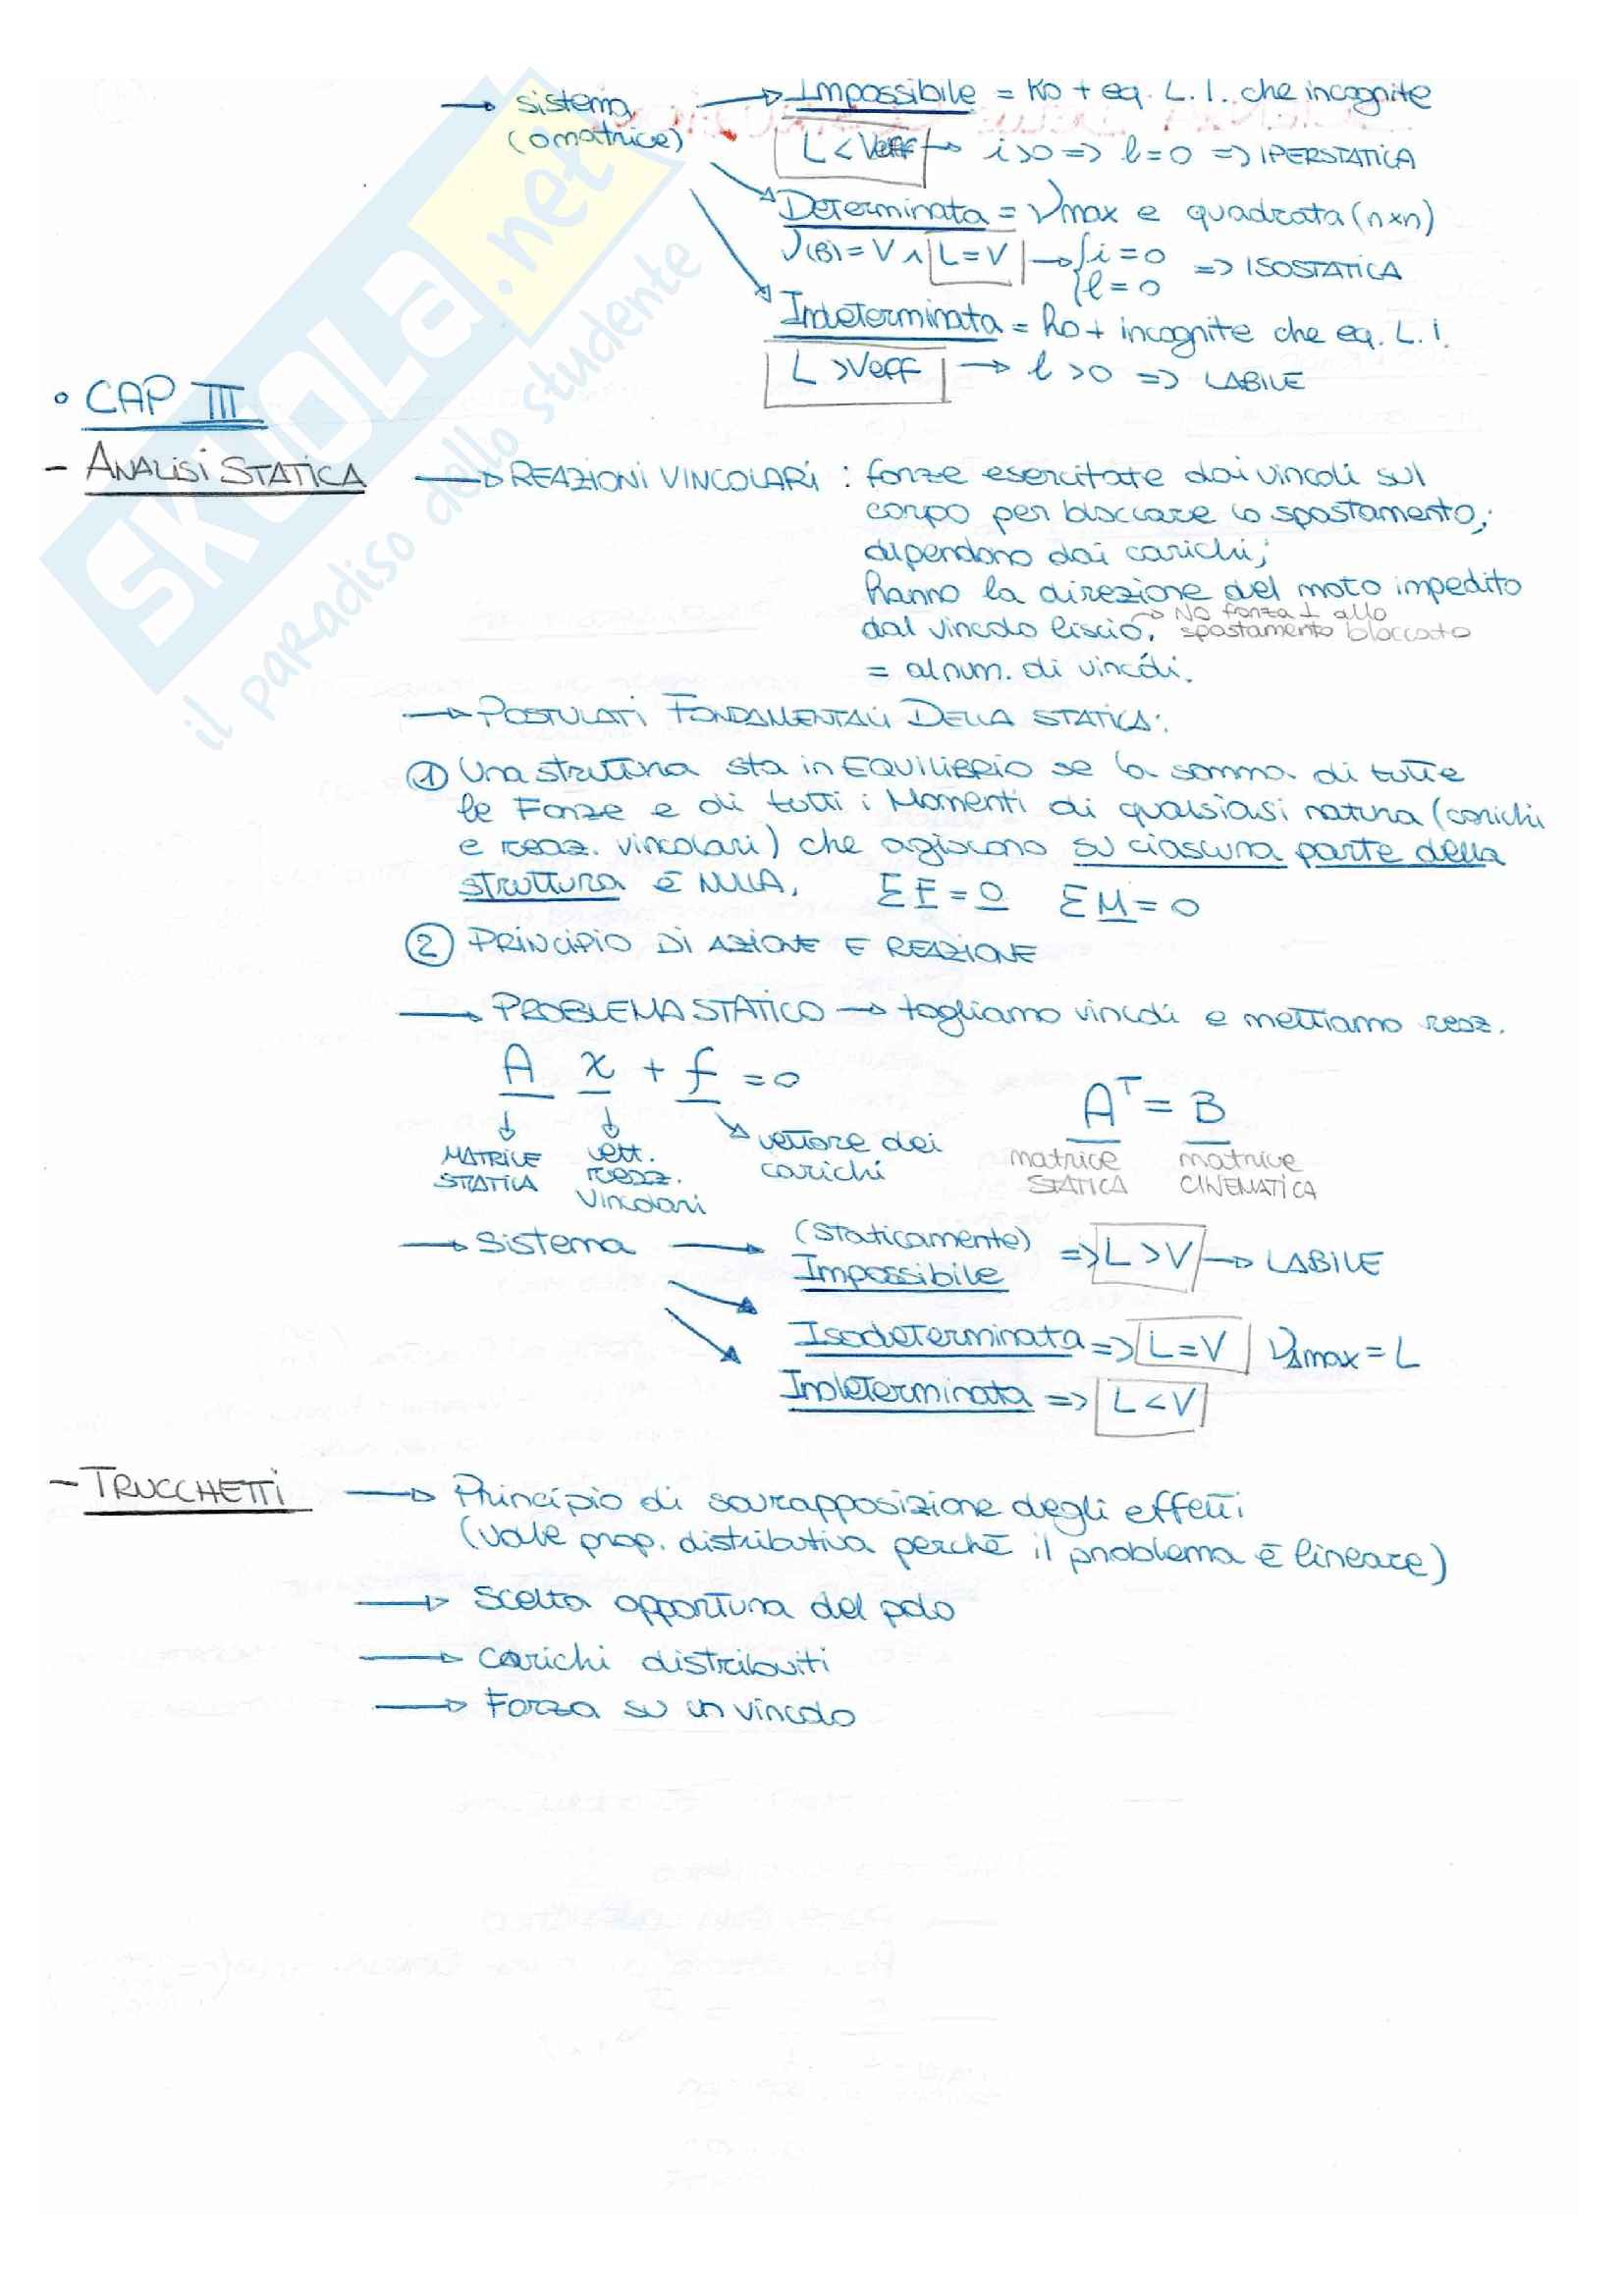 → sistema → Impossibile = ho + eq. L.I. che incognite
(o matrice) L < Veff → i>0 => l=0 => IPERSTATICA
Determinata = νmax e quadrata (n×n)
ν(B) = V ∧ L=V → { i=0 l=0 => ISOSTATICA
Indeterminata = ho + incognite che eq. L.I.
L > Veff → l>0 => LABILE
• CAP III
- ANALISI STATICA → REAZIONI VINCOLARI : forze esercitate dai vincoli sul
corpo per bloccare lo spostamento;
dipendono dai carichi;
hanno la direzione del moto impedito
dal vincolo liscio. → NO forza ⊥ allo
spostamento bloccato
= al num. di vincoli.
→ POSTULATI FONDAMENTALI DELLA STATICA:
① Una struttura sta in EQUILIBRIO se la somma di tutte
le Forze e di tutti i Momenti di qualsiasi natura (carichi
e reaz. vincolari) che agiscono su ciascuna parte della
struttura è NULLA. ΣF = 0 ΣM = 0
② PRINCIPIO DI AZIONE E REAZIONE
→ PROBLEMA STATICO → togliamo vincoli e mettiamo reaz.
A x + f = 0
Aᵀ = B
MATRICE STATICA
vett. reaz. vincolari
vettore dei carichi
matrice STATICA
matrice CINEMATICA
→ Sistema → (staticamente)
Impossibile => L > V → LABILE
Isodeterminata => L = V νAmax = L
Indeterminata => L < V
- TRUCCHETTI → Principio di sovrapposizione degli effetti
(vale prop. distributiva perchè il problema è lineare)
→ Scelta opportuna del polo
→ Carichi distribuiti
→ Forza su un vincolo
SKUOLA.net
il paradiso dello studente